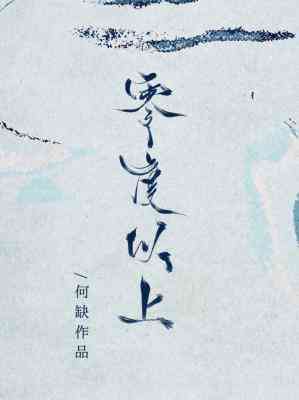 零度以上
/何缺作品